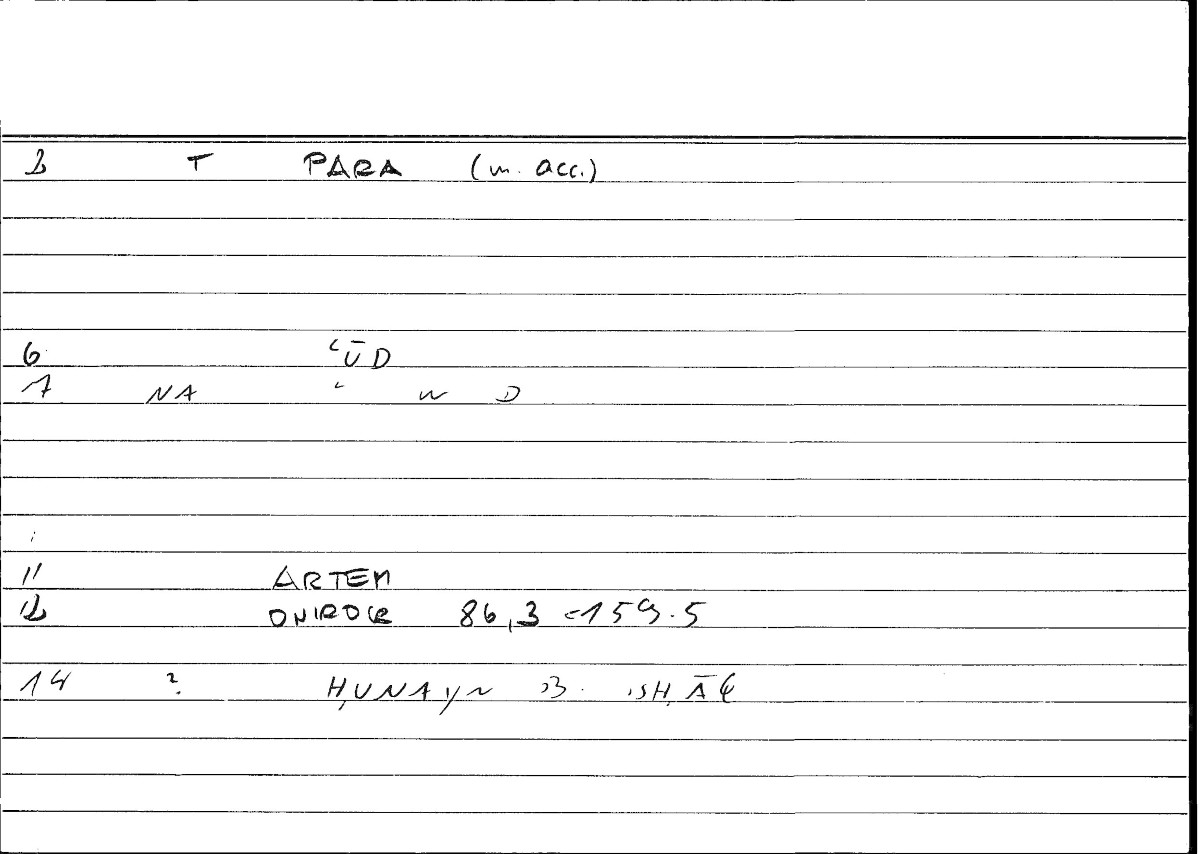 2 T PARA (m. acc.)
6 ʿŪD
7 NA ʿ W D
11 ARTEM
12 ONIROCR 86,3 = 159.5
14 ? ḤUNAYN B. ISḤĀQ